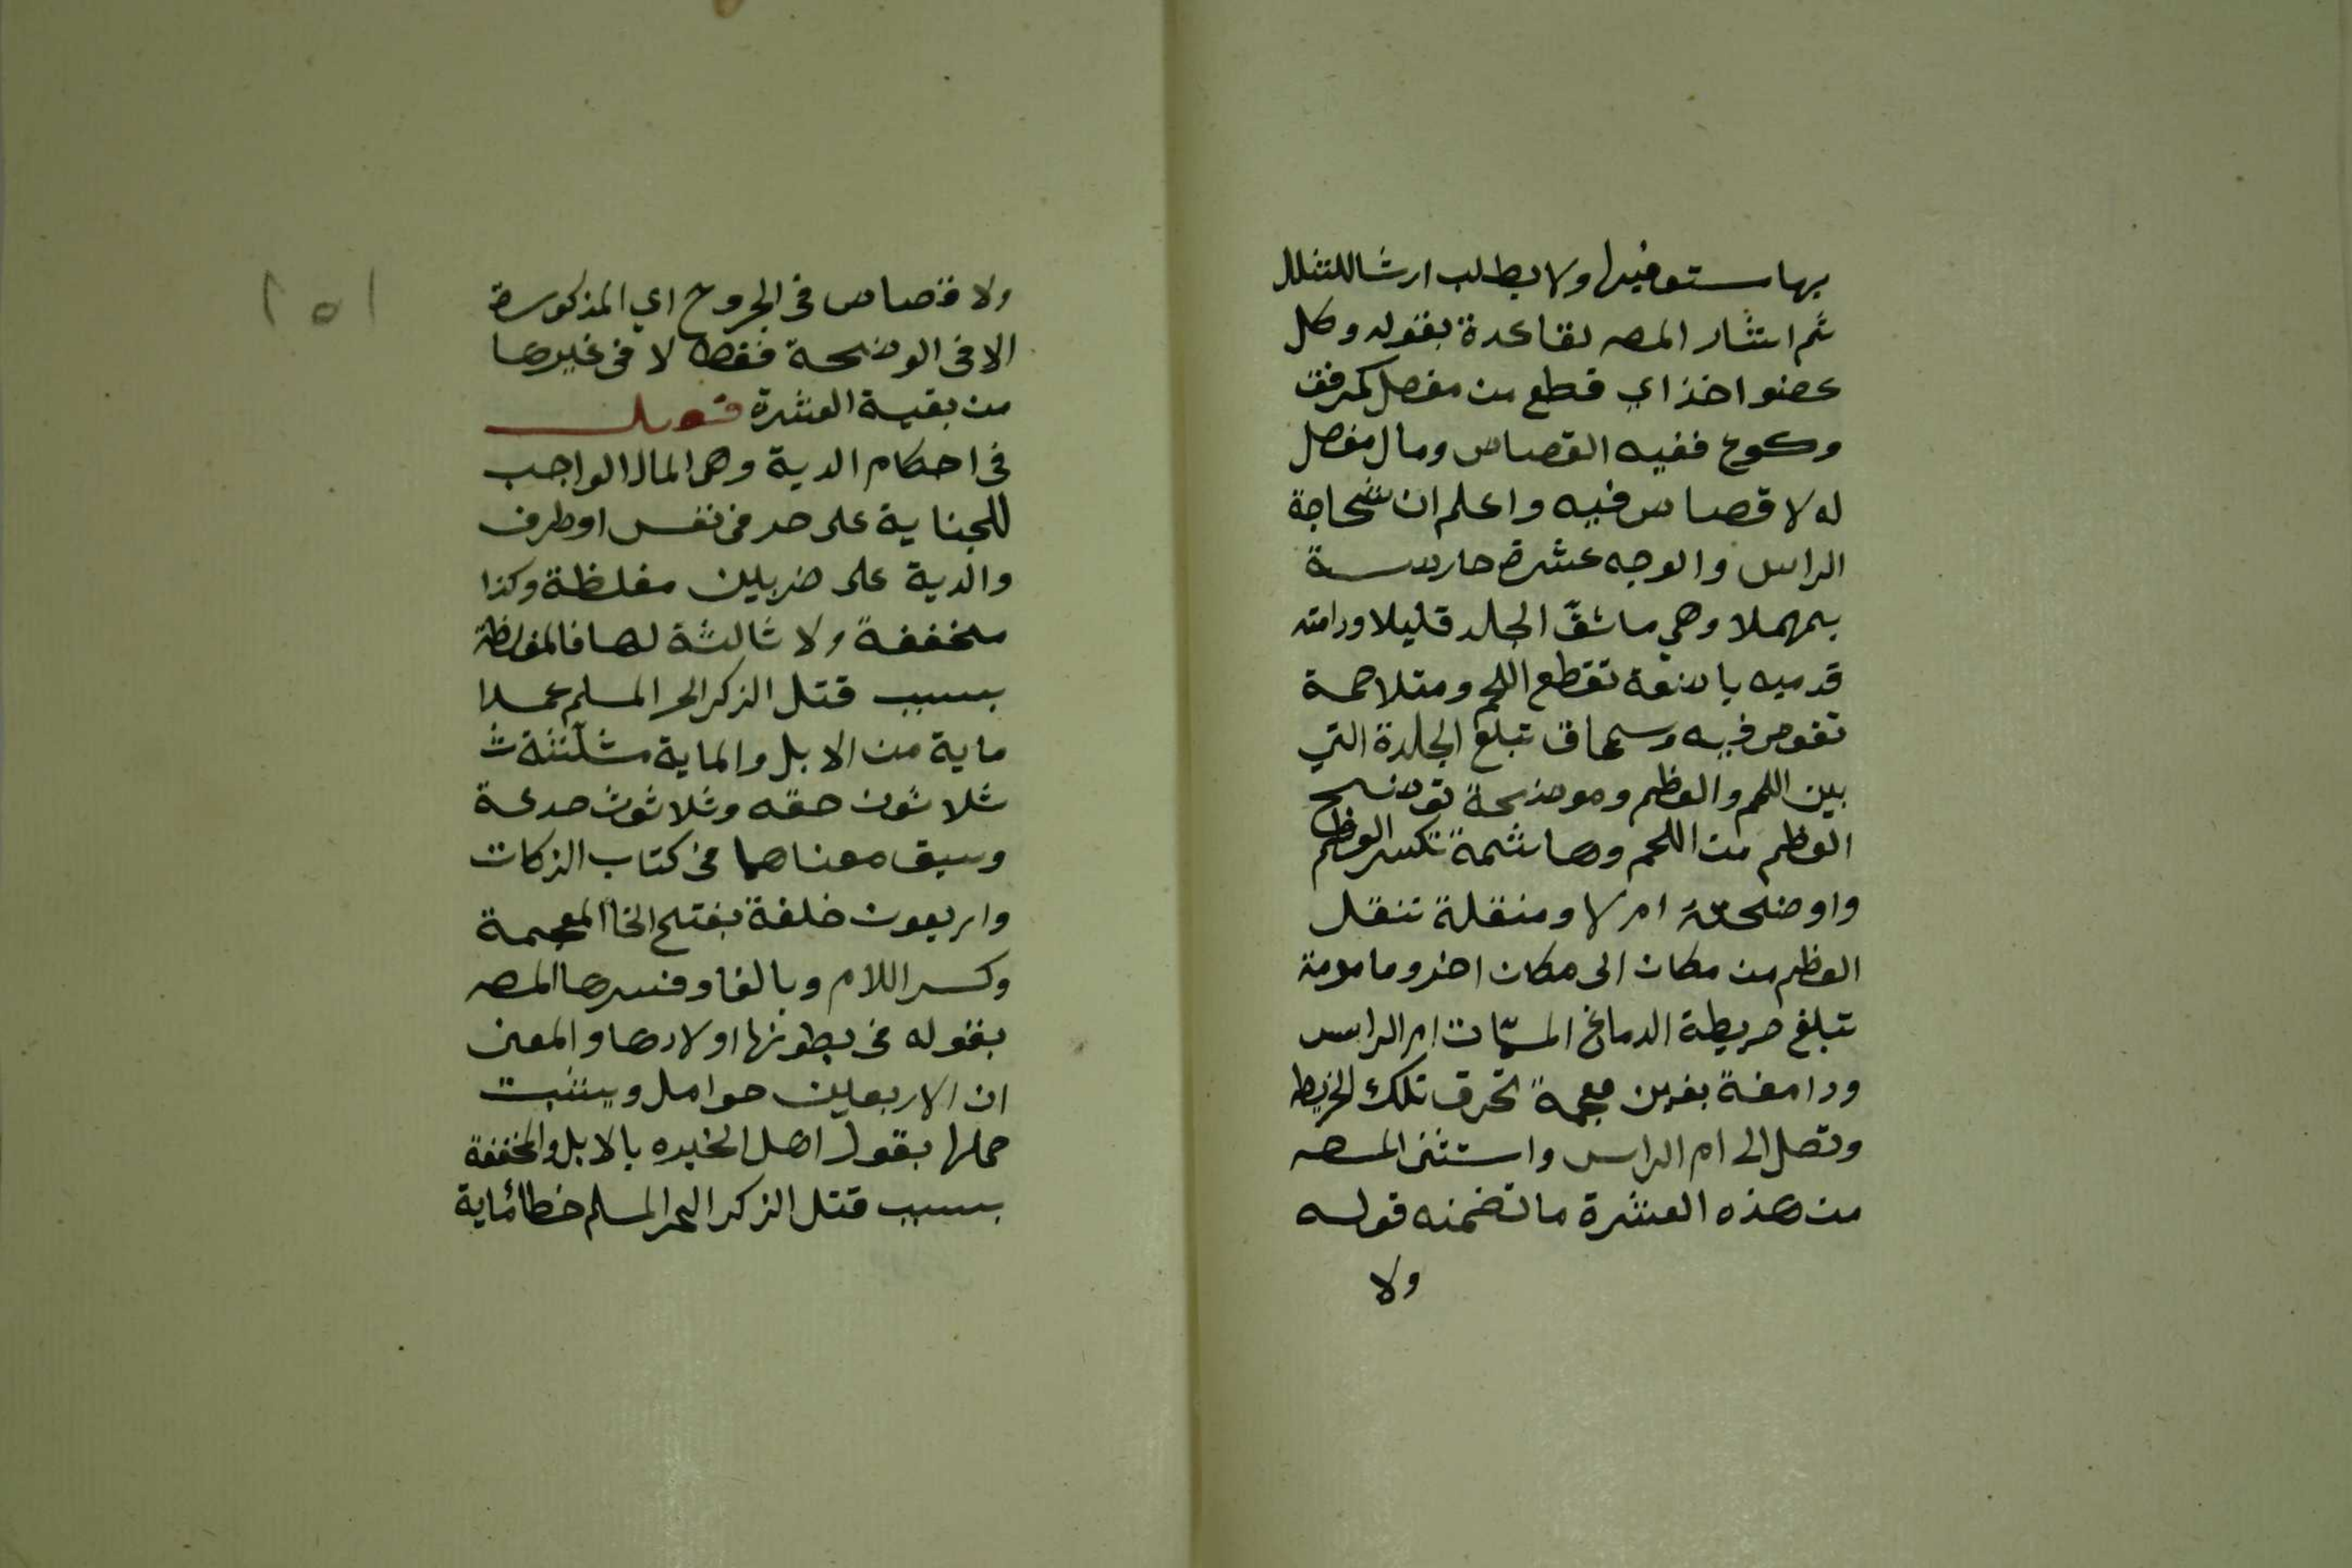 بها مستوفيها ولا يطلب ارشا للشلل
ثم اشار المصه لقاعدة بقوله وكل
عضو اخذ اي قطع من مفصل كمرفق
وكوع ففيه القصاص وما لا مفصل
له لا قصاص فيه واعلم ان شجاجة
الراس والوجه عشرة حارصة
بمهملا وهي ما شقّ الجلد قليلا ودامته
قدميه باضعة تقطع اللحم ومتلاحمة
تغوص فيه وسمحاق تبلغ الجلدة التي
بين اللحم والعظم وموضحة توضح
العظم من اللحم وهاشمة تكسر العظم
واوضحته ام لا ومنقلة تنقل
العظم من مكان الى مكان اخر ومامومة
تبلغ خريطة الدماغ المسمّات ام الراس
ودامغة بغين معجمة تخرق تلك الخريط
وتصل الى ام الراس واستثنى المصه
من هذه العشرة ما تضمنه قوله
ولا
ولا قصاص في الجروح اي المذكورة
الا في الوضحة فقط لا في غيرها
من بقية العشرة فصل
في احكام الدية وهي المال الواجب
للجناية على حر في نفس او طرف
والدية على ضربين مغلظة وكذا
مخففة ولا ثالثة لها فالمغلظة
بسبب قتل الذكر الحر المسلم عمدا
ماية من الابل والماية مثلثة ث
ثلاثون حقه وثلاثون جدعة
وسبق معناهما في كتاب الزكات
واربعون خلفة بفتح الخا المعجمة
وكسر اللام وبالفا وفسرها المصه
بقوله في بطونها اولادها والمعنى
ان الاربعين حوامل ويثبت
حملها بقول اهل الخبره بالابل والمخففة
بسبب قتل الذكر الحر المسلم خطا ماية
١٥١